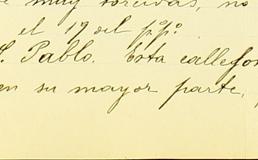 muy torcidas, no
el 19 del p.pº.
S. Pablo. Esta callefo
en su mayor parte,